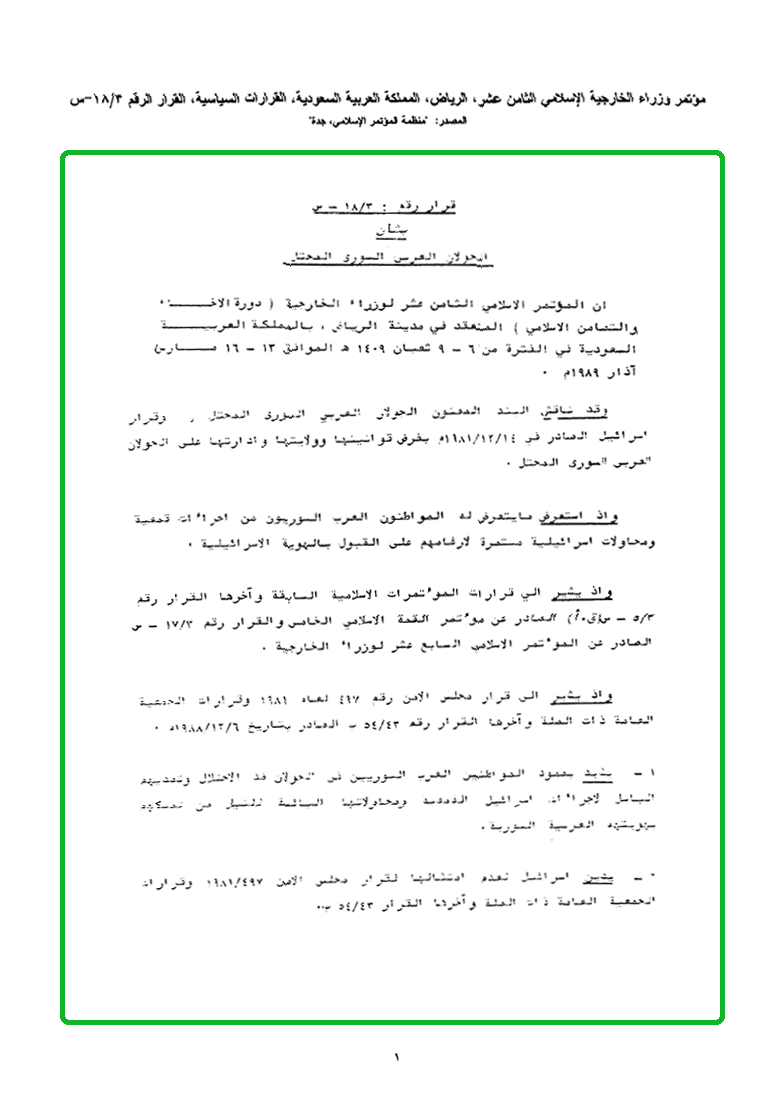 مؤتمر وزراء الخارجية الإسلامي الثامن عشر، الرياض، المملكة العربية السعودية، القرارات السياسية، القرار الرقم ١٨/٣-س
المصدر: "منظمة المؤتمر الإسلامي، جدة"
قرار رقم : ١٨/٣ - س
بشأن
الجولان العربي السوري المحتل
ان المؤتمر الاسلامي الثامن عشر لوزراء الخارجية ( دورة الاخاء
والتضامن الاسلامي ) المنعقد في مدينة الرياض ، بالمملكة العربية
السعودية في الفترة من ٦ - ٩ شعبان ١٤٠٩ هـ الموافق ١٣ - ١٦ مارس
آذار ١٩٨٩م .
وقد ناقش البند المعنون الجولان العربي السورى المحتل ، وقرار
اسرائيل الصادر في ١٩٨١/١٢/١٤م بفرض قوانينها وولايتها وادارتها على الجولان
العربي السورى المحتل .
واذ استعرض مايتعرض له المواطنون العرب السوريون من اجراءات قمعية
ومحاولات اسرائيلية مستمرة لارغامهم على القبول بالهوية الاسرائيلية .
واذ يشير الي قرارات المؤتمرات الاسلامية السابقة وآخرها القرار رقم
٥/٣ - س(ق٠أ) الصادر عن مؤتمر القمة الاسلامي الخامس والقرار رقم ١٧/٣ - س
الصادر عن المؤتمر الاسلامي السابع عشر لوزراء الخارجية .
واذ يشير الى قرار مجلس الامن رقم ٤٩٧ لعام ١٩٨١ وقرارات الجمعية
العامة ذات الصلة وآخرها القرار رقم ٥٤/٤٣ ب الصادر بتاريخ ١٩٨٨/١٢/٦م .
١ - يشيد بصمود المواطنين العرب السوريين في الجولان ضد الاحتلال وتصديهم
الباسل لاجراءات اسرائيل القمعية ومحاولاتها اليائسة للنيل من تمسكهم
بهويتهم العربية السورية .
٢ - يدين اسرائيل لعدم امتثالها لقرار مجلس الامن ١٩٨١/٤٩٧ وقرارات
الجمعية العامة ذات الصلة وآخرها القرار ٥٤/٤٣ ب.
١